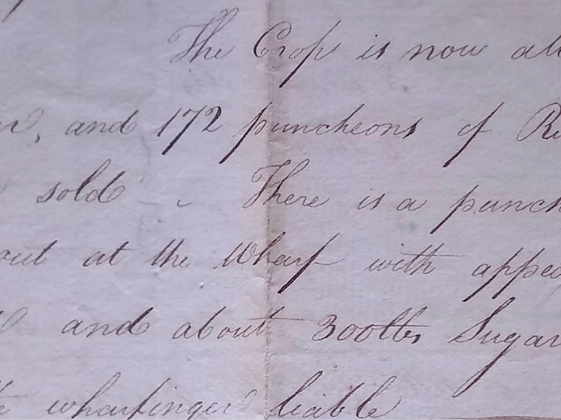 The Crop is now
and 172 puncheons of
sold - There is a punch
out at the Wharf with appea
and about 300lbs Sugar
wharfinger liable